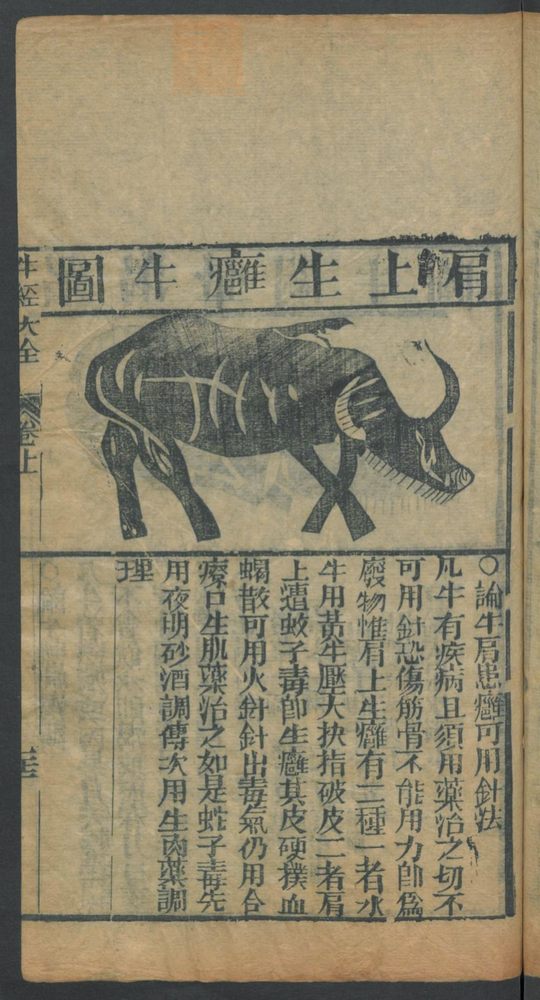 肩上生癰牛圖
○論牛肩患癰可用針法
凡牛有疾病且須用藥治之切不
可用針恐傷筋骨不能用力卽爲
廢物惟肩上生癰有二種一者水
牛用黃牛壓大抉指破皮二者肩
上遭蚊子毒卽生癰其皮硬撲血
蝎散可用火針針出毒氣仍用合
瘡口生肌藥治之如是蚊子毒先
用夜明砂酒調傅次用生肉藥調
理
牛經大全
卷上